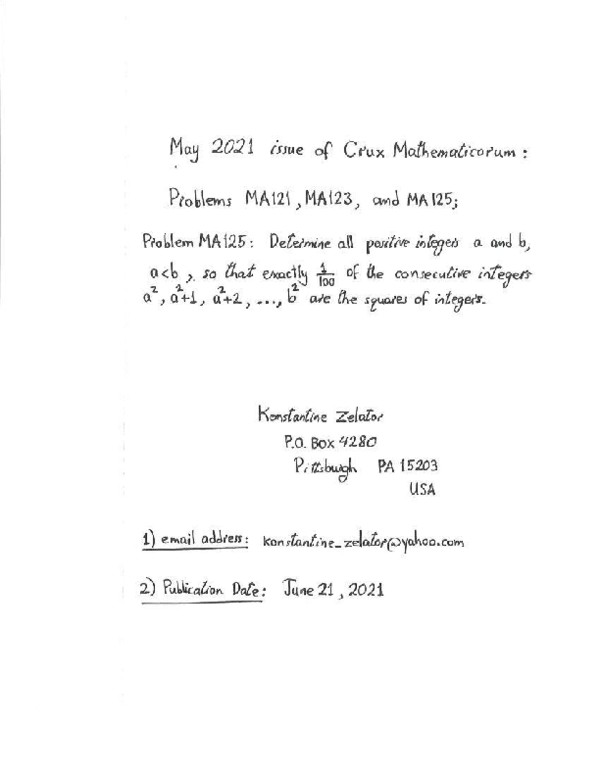 May 2021 issue of Crux Mathematicorum:
Problems MA121, MA123, and MA125;
Problem MA125: Determine all positive integers a and b,
a<b, so that exactly 1/100 of the consecutive integers
a², a²+1, a²+2, ..., b² are the squares of integers.
Konstantine Zelator
P.O. Box 4280
Pittsburgh PA 15203
USA
1) email address: konstantine_zelator@yahoo.com
2) Publication Date: June 21, 2021